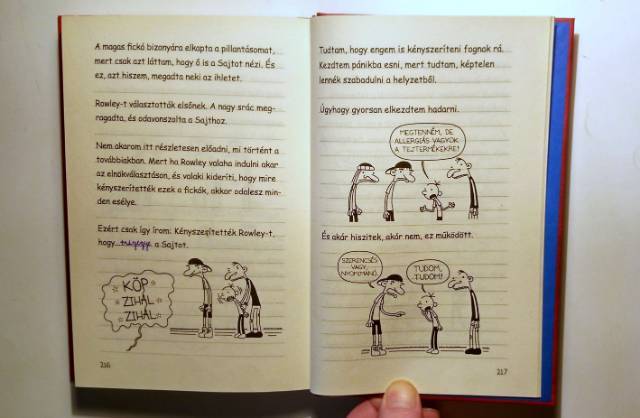 A magas fickó bizonyára elkapta a pillantásomat,
mert csak azt láttam, hogy ő is a Sajtot nézi. És
ez, azt hiszem, megadta neki az ihletet.
Rowley-t választották elsőnek. A nagy srác meg-
ragadta, és odavonszolta a Sajthoz.
Nem akarom itt részletesen előadni, mi történt a
továbbiakban. Mert ha Rowley valaha indulni akar
az elnökválasztáson, és valaki kideríti, hogy mire
kényszerítették ezek a fickók, akkor odalesz min-
den esélye.
Ezért csak így írom: Kényszerítették Rowley-t,
hogy a Sajtot.
KÖP
ZIHÁL
ZIHÁL
216
Tudtam, hogy engem is kényszeríteni fognak rá.
Kezdtem pánikba esni, mert tudtam, képtelen
lennék szabadulni a helyzetből.
Úgyhogy gyorsan elkezdtem hadarni.
MEGTENNÉM, DE
ALLERGIÁS VAGYOK
A TEJTERMÉKEKRE!
És akár hiszitek, akár nem, ez működött.
SZERENCSÉS
VAGY,
NYOMIMANÓ.
TUDOM,
TUDOM!
217